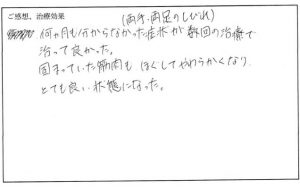 ご感想、治療効果
(両手・両足のしびれ)
何ヶ月も分からなかった症状が数回の治療で
治って良かった。
固まっていた筋肉も ほぐしてやわらかくなり、
とても良い状態になった。